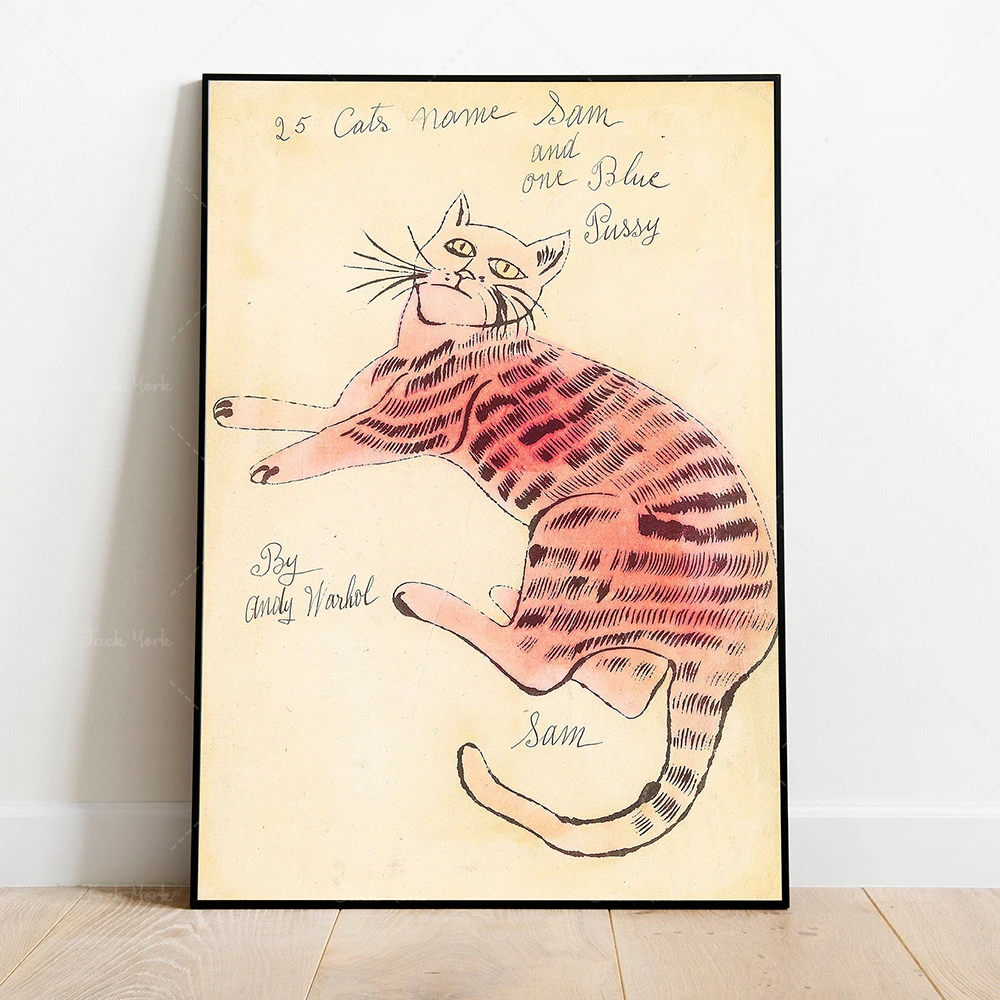 25 Cats name Sam
and
one Blue
Pussy
By
Andy Warhol
Sam
Jack York
Jack York